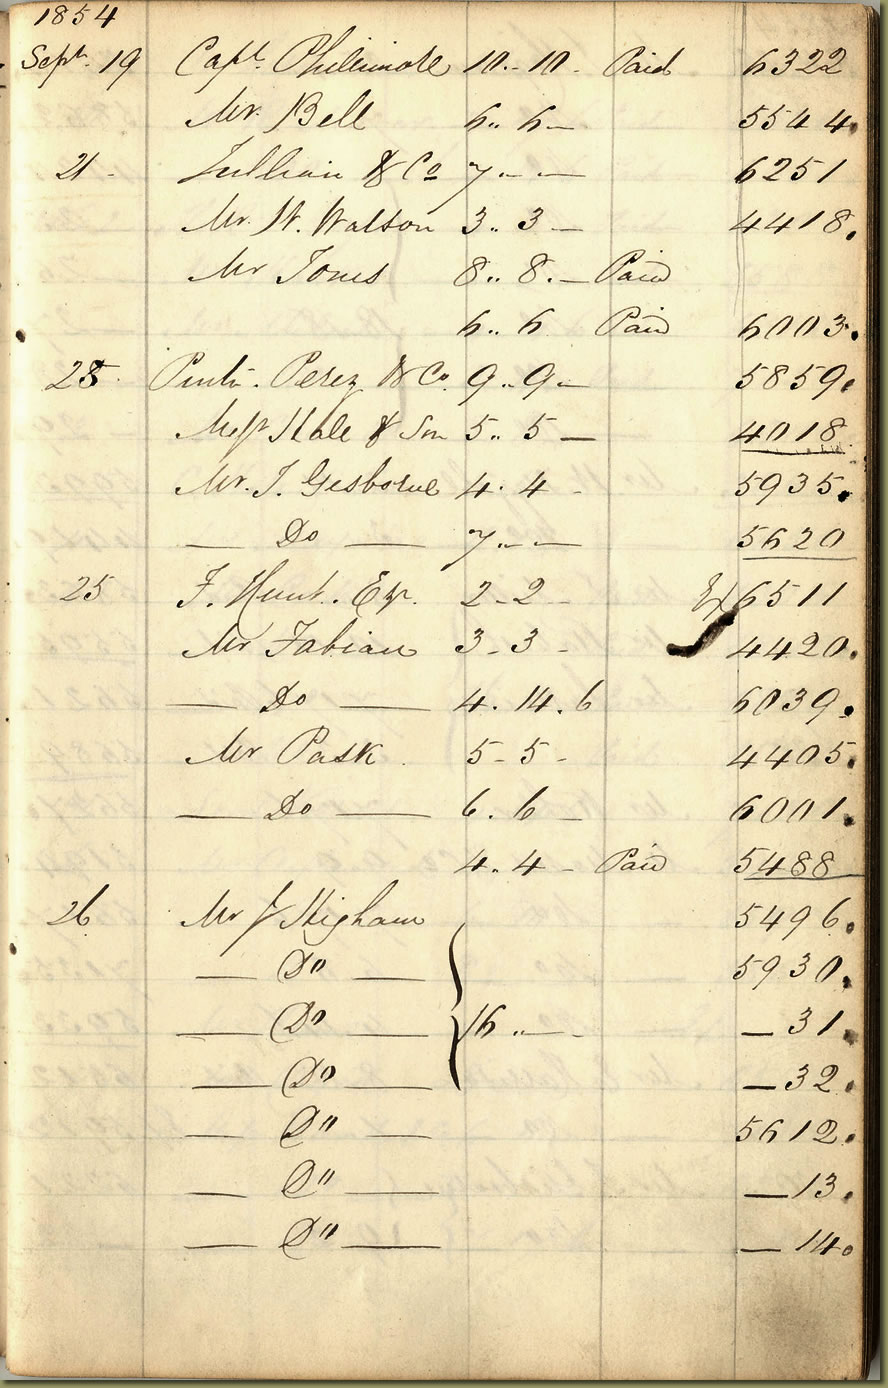 1854
Sept. 19 Capt. Phillimore 10.- 10 - Paid 6322
Mr. Bell 6.. 6 — 5544.
21 - & Co 7 .. — — 6251
Mr. W. Watson 3.. 3 — 4418.
Mr Jones 8.. 8. — Paid
6.. 6 Paid 6003.
Perez & Co. 9.. 9 — 5859.
& Son 5.. 5 — 4018
Mr. T. Gisborne 4. 4 - 5935.
— Do — 7 .. — — 5620
25 F. Hunt. Esq. 2 - 2 - 6511
Mr Fabian 3 - 3 - 4420.
— Do — 4. 14. 6 6039.
Mr Pask 5 - 5 - 4405.
— Do — 6. 6 — 6001.
4.. 4 - Paid 5488
26 Mr J Higham 5496.
— Do — 5930.
— Do — 16 .. — - — 31.
— Do — — 32.
— Do — 5612.
— Do — — 13.
— Do — — 14.